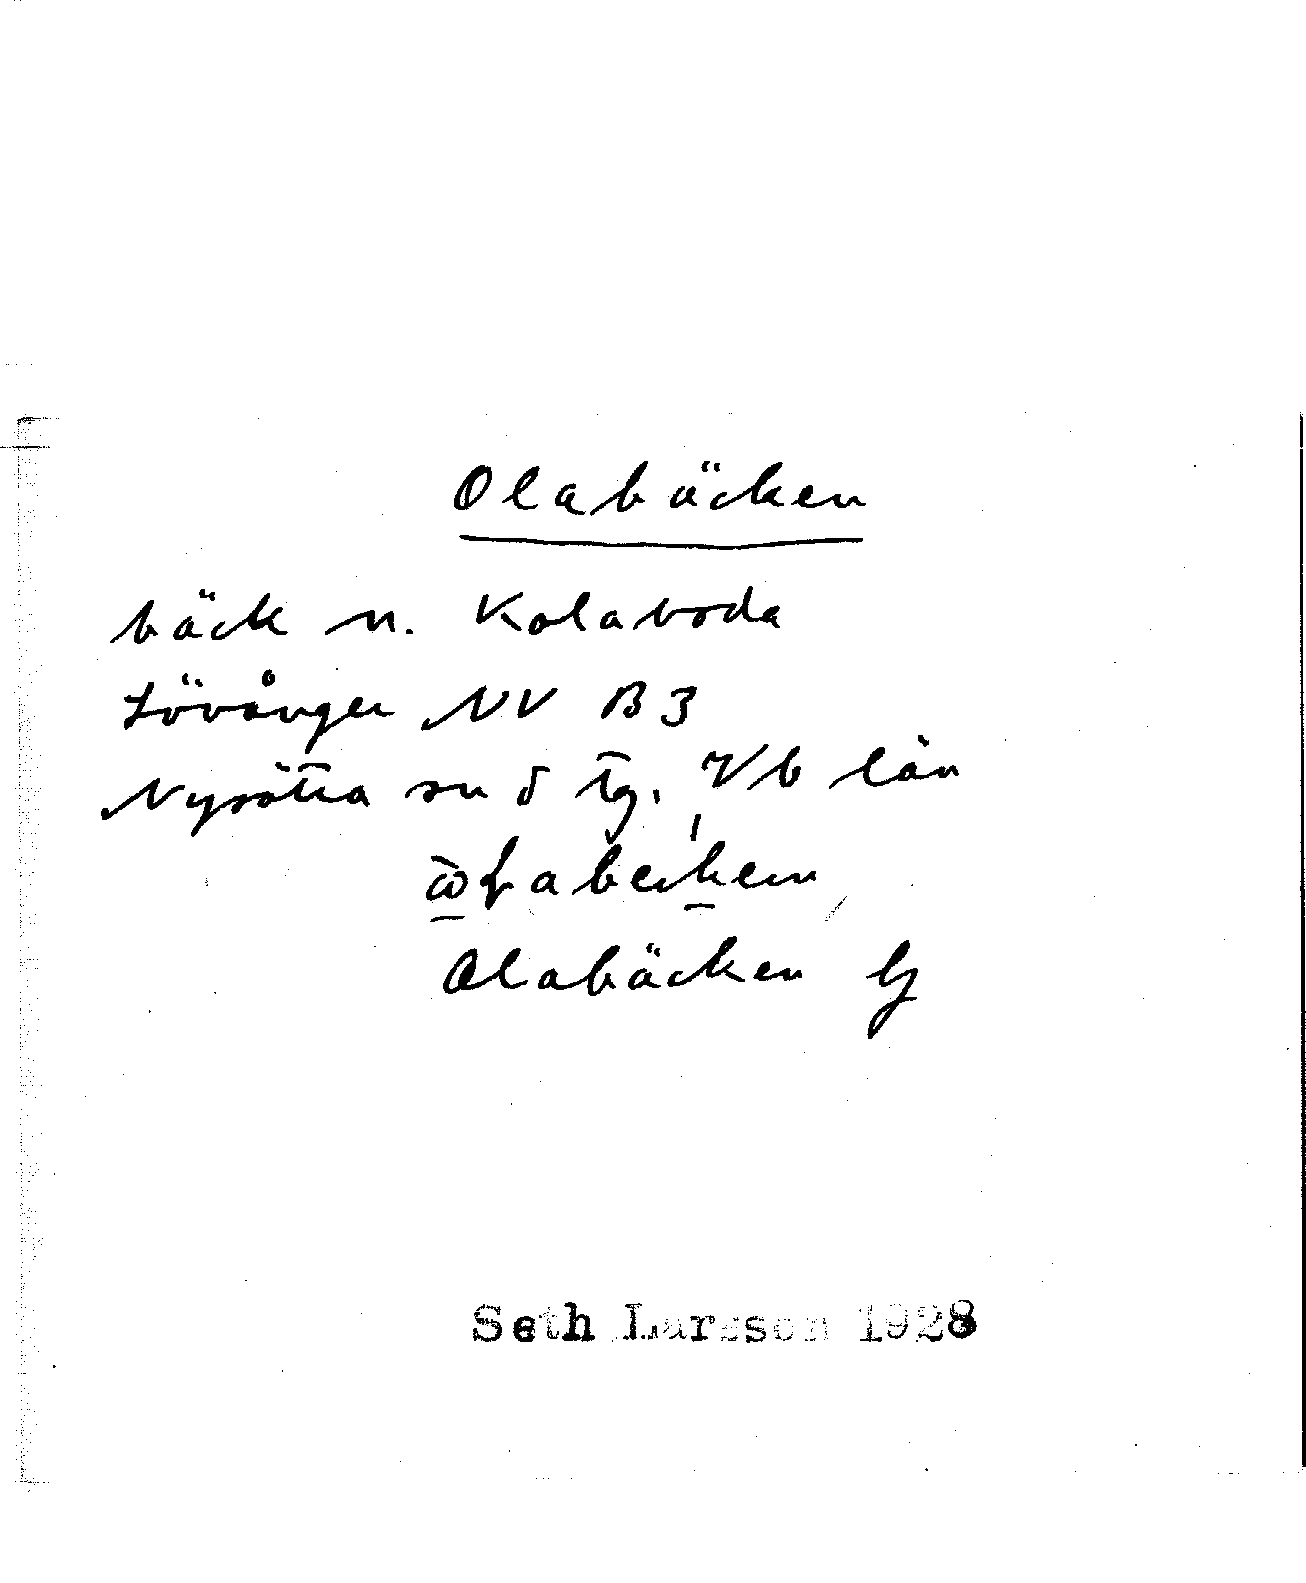 Olabäcken
bäck n. Kolaboda
Lövånger NV B3
Nysätra sn o tg. Vb län
Olabäcken
Seth Larsson 1928